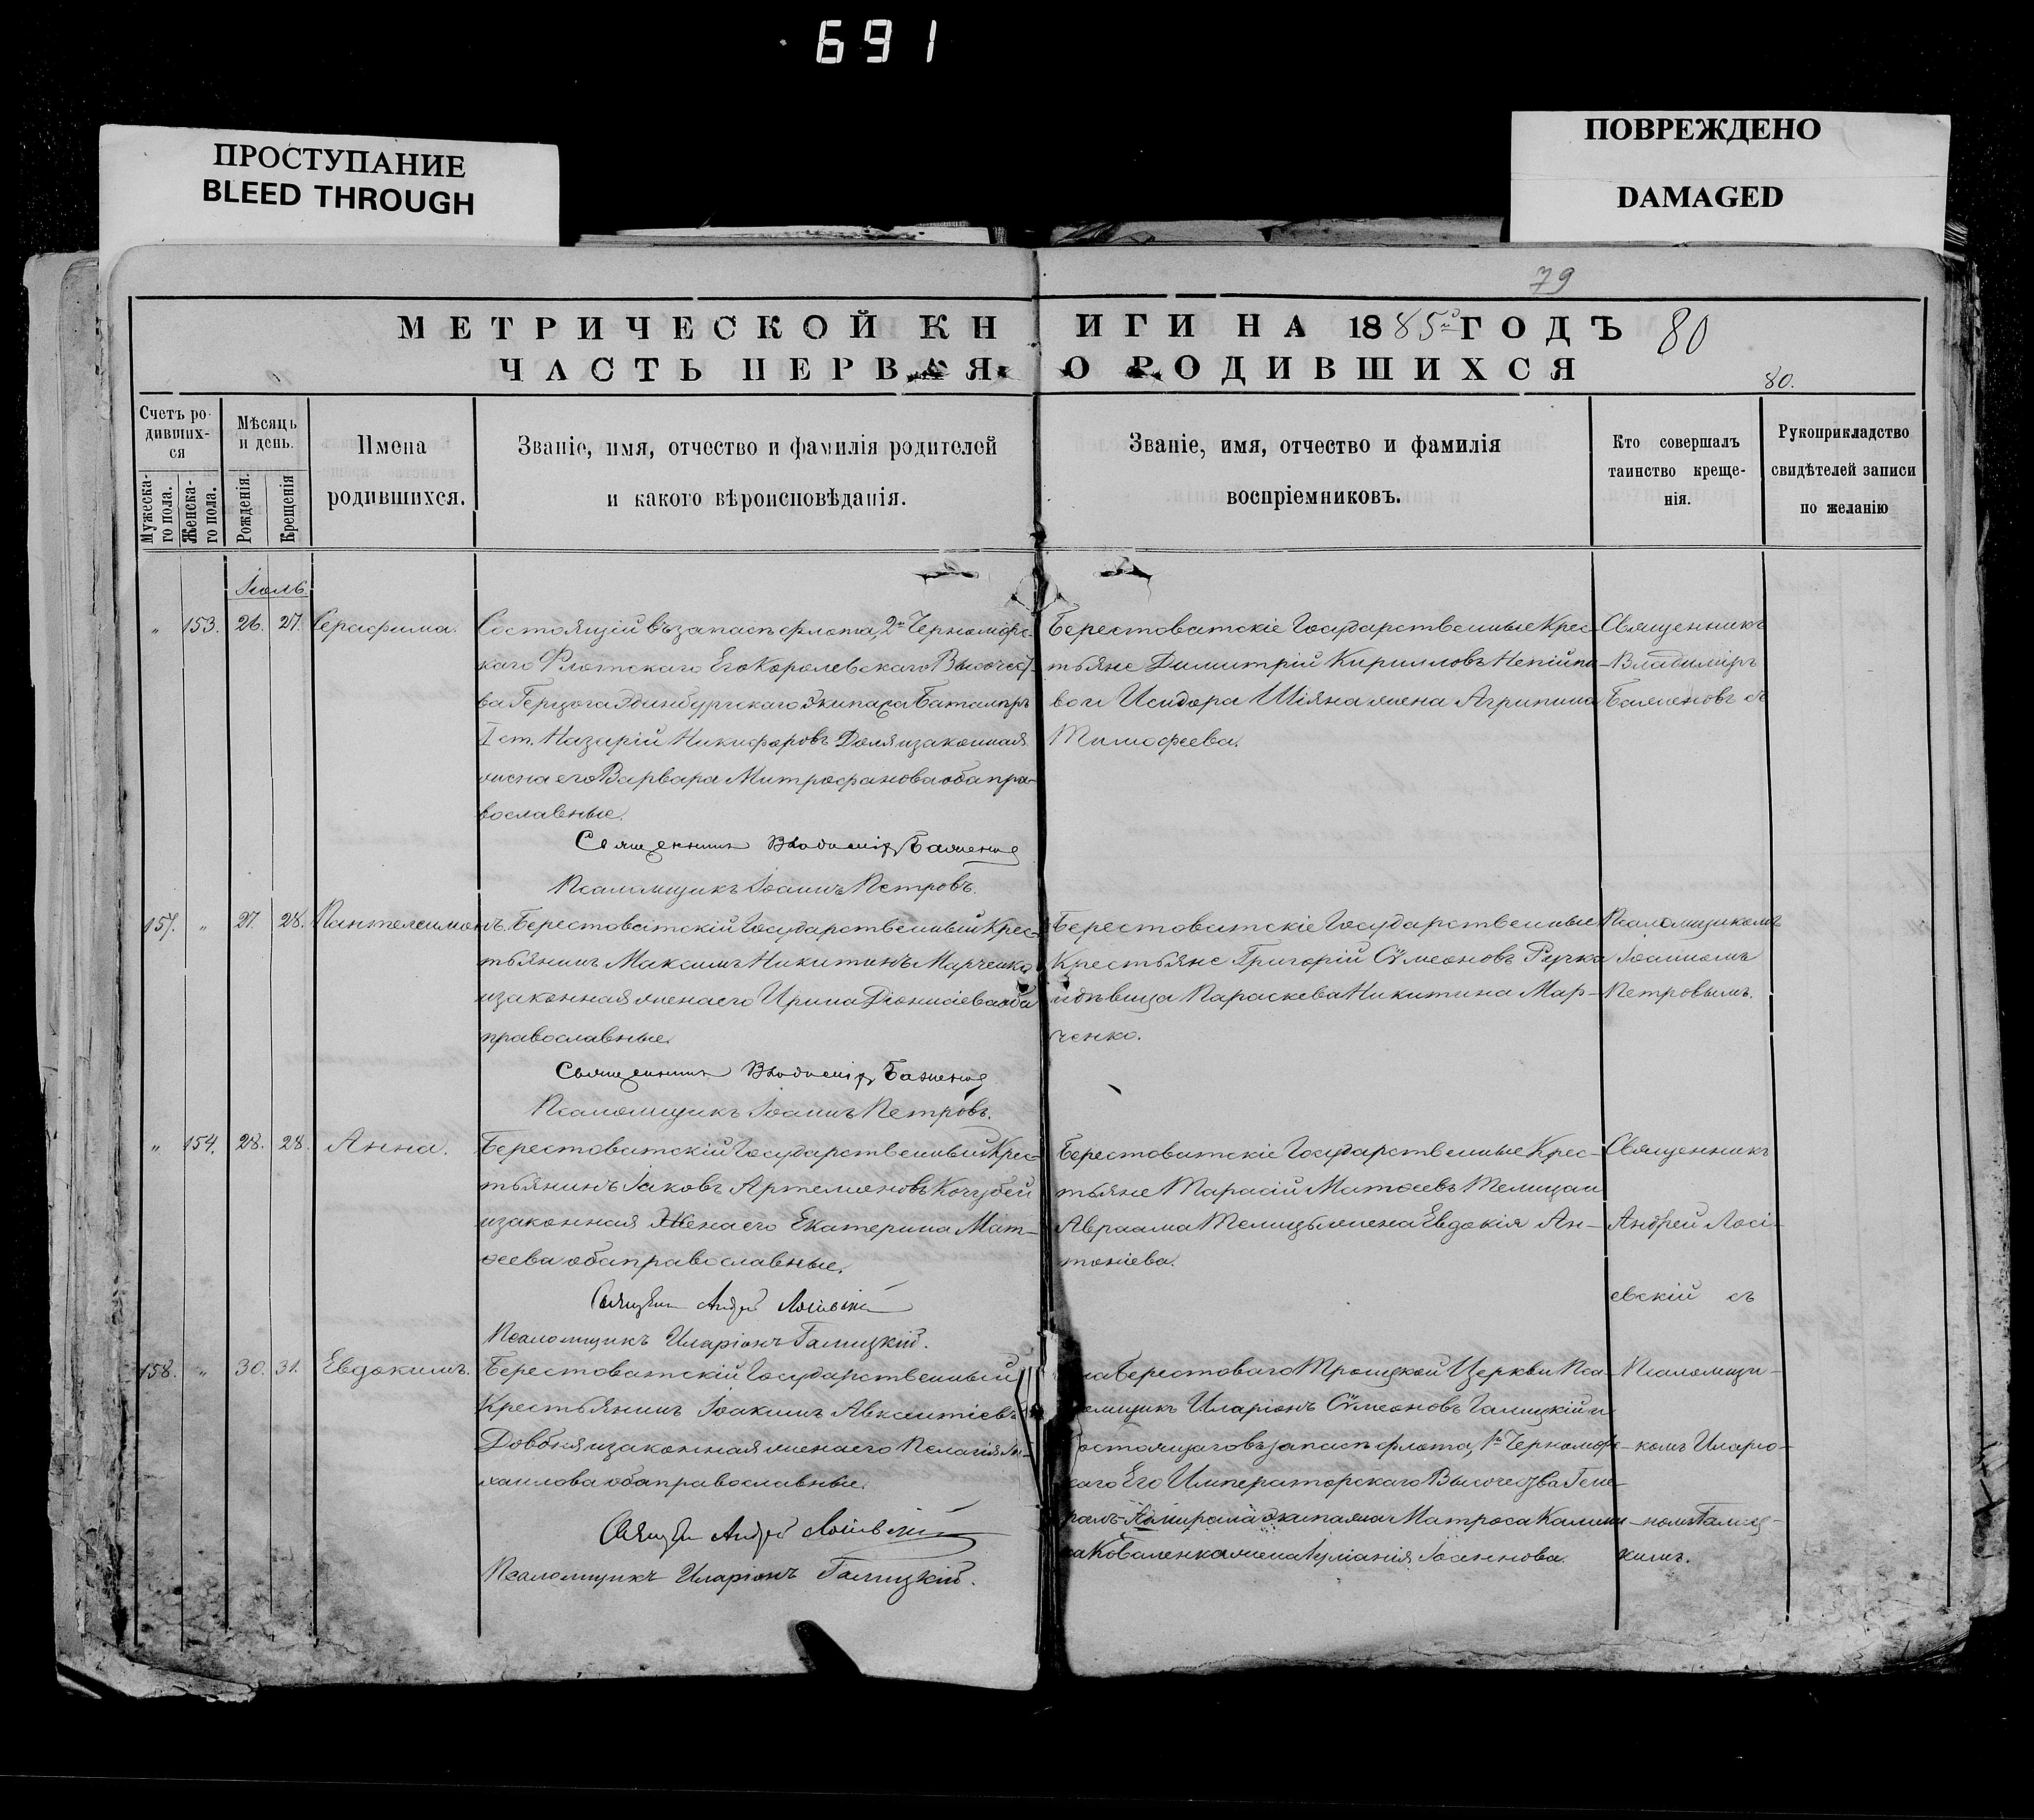 691
ПРОСТУПАНИЕ
BLEED THROUGH
ПОВРЕЖДЕНО
DAMAGED
79
МЕТРИЧЕСКОЙ КНИГИ НА 1885й ГОДЪ 80
ЧАСТЬ ПЕРВАЯ О РОДИВШИХСЯ
80.
Счетъ ро-
дивших-
ся
Мужеска-
го пола.
Женска-
го пола.
Мѣсяцъ
и день.
Рожденія.
Крещенія
Имена
родившихся.
Званіе, имя, отчество и фамилія родителей
и какого вѣроисповѣданія.
Званіе, имя, отчество и фамилія
воспріемниковъ.
Кто совершалъ
таинство креще-
нія.
Рукоприкладство
свидѣтелей записи
по желанію
Іюль.
„ 153. 26. 27. Серафима.
Состоящій въ запасѣ флота, 2го Черноморс-
каго Флотскаго Его Королевскаго Высочест-
ва Герцога Эдинбургскаго Экипажа Баталеръ
I ст. Назарій Никифоровъ Доля и законная
жена его Варвара Митрофанова оба пра-
вославные.
Священникъ Владиміръ Баженовъ
Псаломщикъ Іоаннъ Петровъ.
Берестоватскіе Государственные Крес-
тьяне Димитрій Кирилловъ Непійпи-
во и Исидора Шіяна жена Агрипина
Тимофеева.
Священникъ
Владиміръ
Баженовъ съ
157. „ 27. 28. Пантелеимонъ.
Берестоватскій Государственный Крес-
тьянинъ Максимъ Никитинъ Марченко
и законная жена его Ирина Діонисіева оба
православные.
Священникъ Владиміръ Баженовъ
Псаломщикъ Іоаннъ Петровъ.
Берестоватскіе Государственные
Крестьяне Григорій Сѵмеоновъ Ручка
и дѣвица Параскева Никитина Мар-
ченко.
Псаломщикомъ
Іоанномъ
Петровымъ.
„ 154. 28. 28. Анна.
Берестоватскій Государственный Крес-
тьянинъ Іаковъ Артемоновъ Кочубей
и законная Жена его Екатерина Мат-
ѳеева оба православные.
Священникъ Андрей Лосіевскій
Псаломщикъ Иларіонъ Галицкій.
Берестоватскіе Государственные Крес-
тьяне Тарасій Матѳеевъ Телица и
Авраама Телицы жена Евдокія Ан-
тоніева.
Священникъ
Андрей Лосі-
евскій съ
158. „ 30. 31. Евдокимъ.
Берестоватскій Государственный
Крестьянинъ Іоакимъ Авксентіевъ
Довбня и законная жена его Пелагія Ми-
хаилова оба православные.
Священникъ Андрей Лосіевскій
Псаломщикъ Иларіонъ Галицкій.
Берестоваго Троицкой Церкви Пса-
ломщикъ Иларіонъ Сѵмеоновъ Галицкій и
состоящаго въ запасѣ флота, 1го Черноморс-
каго Его Императорскаго Высочества Гене-
ралъ-Адмирала экипажа Матроса
Коваленка жена Іуліанія Іоаннова.
Псаломщи-
комъ Иларіо-
номъ Галиц-
кимъ.